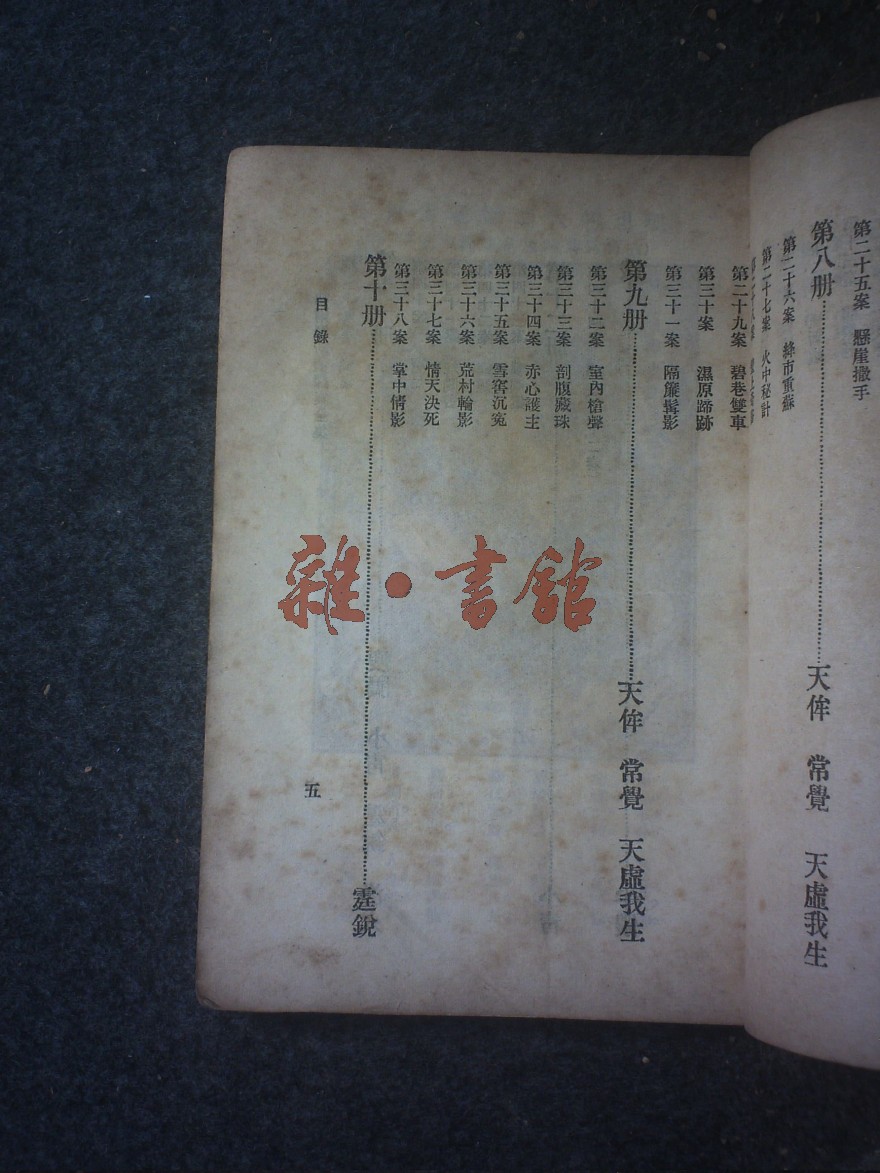 第二十五案 懸崖撒手
第八册 天侔 常覺 天虛我生
第二十六案 絳市重蘇
第二十七案 火中秘計
第二十九案 碧巷雙車
第三十案 濕原蹄跡
第三十一案 隔簾髯影
第九册 天侔 常覺 天虛我生
第三十二案 室內槍聲
第三十三案 剖腹藏珠
第三十四案 赤心護主
第三十五案 雪窖沉寃
第三十六案 荒村輪影
第三十七案 情天決死
第三十八案 掌中倩影
第十册 霆銳
目錄
五
雜·書館